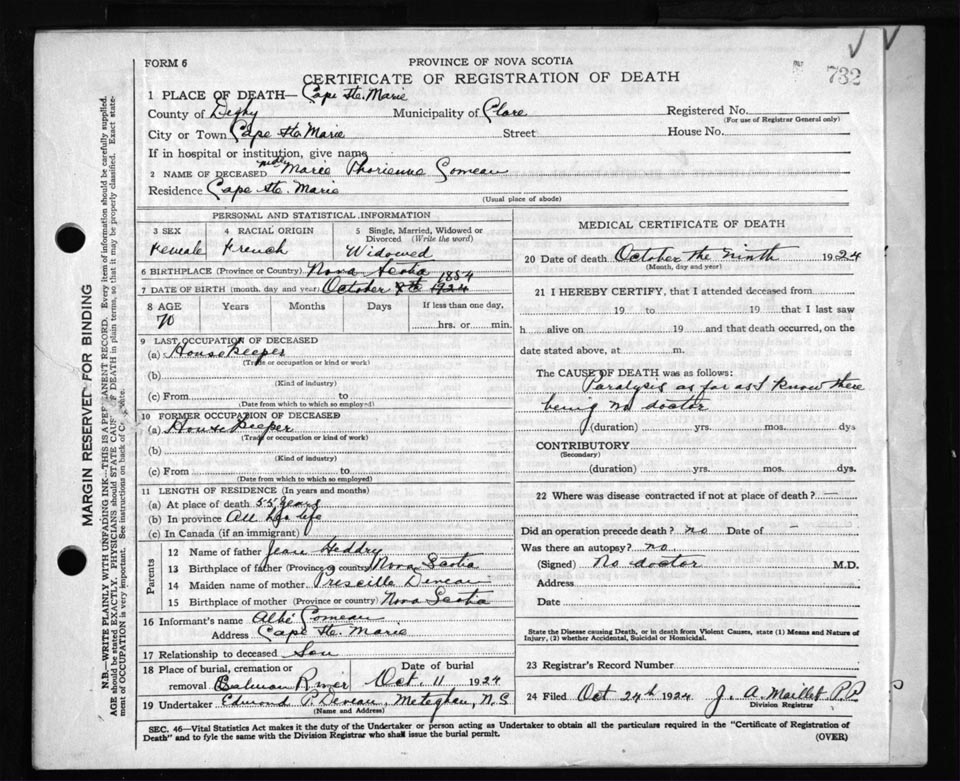 FORM 6
PROVINCE OF NOVA SCOTIA
732
CERTIFICATE OF REGISTRATION OF DEATH
1 PLACE OF DEATH— Cape Ste. Marie
County of Digby Municipality of Clare Registered No.
(For use of Registrar General only)
City or Town Cape Ste Marie Street House No.
If in hospital or institution, give name
2 NAME OF DECEASED Marie Comeau
Residence Cape Ste. Marie
(Usual place of abode)
PERSONAL AND STATISTICAL INFORMATION
3 SEX 4 RACIAL ORIGIN 5 Single, Married, Widowed or Divorced (Write the word)
Female French Widowed
6 BIRTHPLACE (Province or Country) Nova Scotia
1854
7 DATE OF BIRTH (month, day and year) October 8th 1924
8 AGE Years Months Days If less than one day,
70 hrs. or min.
9 LAST OCCUPATION OF DECEASED
(a) House keeper
(Trade or occupation or kind of work)
(b)
(Kind of industry)
(c) From to
(Date from which to which so employed)
10 FORMER OCCUPATION OF DECEASED
(a) House keeper
(Trade or occupation or kind of work)
(b)
(Kind of industry)
(c) From to
(Date from which to which so employed)
11 LENGTH OF RESIDENCE (In years and months)
(a) At place of death 55 years
(b) In province All life
(c) In Canada (if an immigrant)
Parents
12 Name of father Jean Heddry
13 Birthplace of father (Province or country) Nova Scotia
14 Maiden name of mother Priscille Deveau
15 Birthplace of mother (Province or country) Nova Scotia
16 Informant's name Albé Comeau
Address Cape Ste. Marie
17 Relationship to deceased Son
18 Place of burial, cremation or Date of burial
removal Salmon River Oct. 11 1924
19 Undertaker Edmond P. Deveau, Meteghan, N.S
(Name and Address)
MEDICAL CERTIFICATE OF DEATH
20 Date of death October the ninth 1924
(Month, day and year)
21 I HEREBY CERTIFY, that I attended deceased from
19 to 19 that I last saw
h alive on 19 and that death occurred, on the
date stated above, at m.
The CAUSE OF DEATH was as follows:
Paralysis as far as I know there
being no doctor
(duration) yrs. mos. dys
CONTRIBUTORY
(Secondary)
(duration) yrs. mos. dys.
22 Where was disease contracted if not at place of death? —
Did an operation precede death? no Date of –
Was there an autopsy? no.
(Signed) No doctor M.D.
Address
Date
State the Disease causing Death, or in death from Violent Causes, state (1) Means and Nature of
Injury, (2) whether Accidental, Suicidal or Homicidal.
23 Registrar's Record Number
24 Filed Oct 24th 1924 J. A. Maillet P.P.
Division Registrar
SEC. 46—Vital Statistics Act makes it the duty of the Undertaker or person acting as Undertaker to obtain all the particulars required in the "Certificate of Registration of
Death" and to fyle the same with the Division Registrar who shall issue the burial permit. (OVER)
MARGIN RESERVED FOR BINDING
N.B.—WRITE PLAINLY WITH UNFADING INK—THIS IS A PERMANENT RECORD. Every item of information should be carefully supplied.
AGE should be stated EXACTLY. PHYSICIANS should STATE CAUSE OF DEATH in plain terms, so that it may be properly classified. Exact state-
ment of OCCUPATION is very important. See instructions on back of